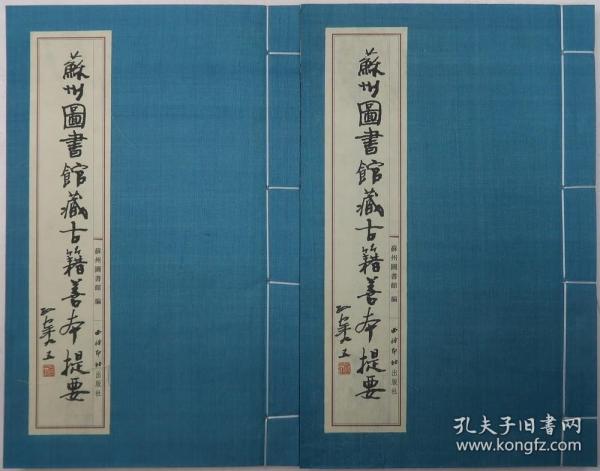 蘇州圖書館藏古籍善本提要
蘇州圖書館 編
西泠印社出版社
蘇州圖書館藏古籍善本提要
蘇州圖書館 編
西泠印社出版社
孔夫子旧书网
www.kongfz.com